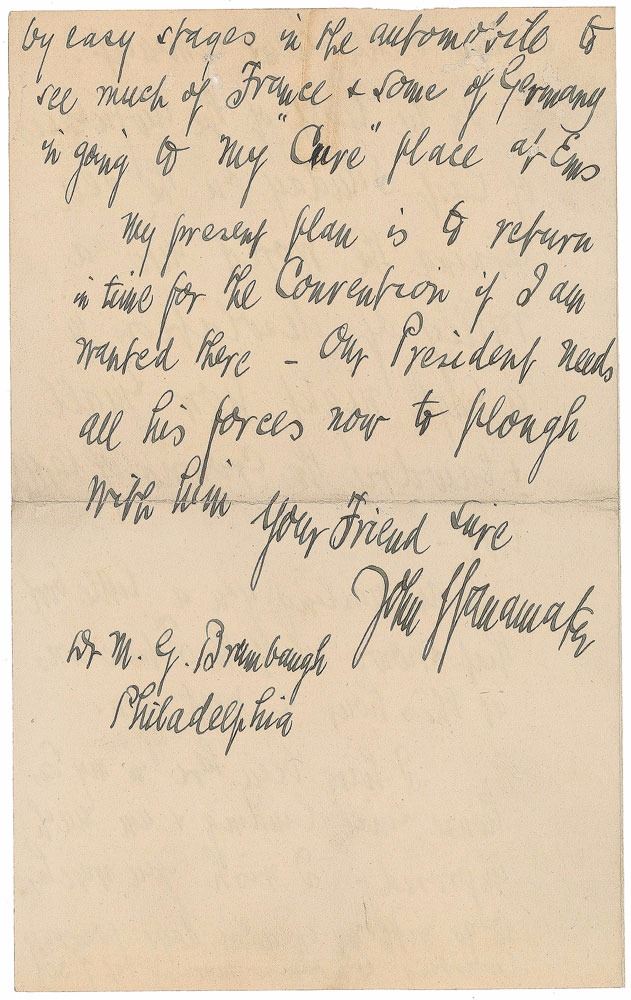 by easy stages in the automobile to
see much of France & some of Germany
in going to my "Cure" place at Ems
My present plan is to return
in time for the Convention if I am
wanted there - Our President needs
all his forces now to plough
with him
Your Friend sure
John Wanamaker
Dr M. G. Brumbaugh
Philadelphia